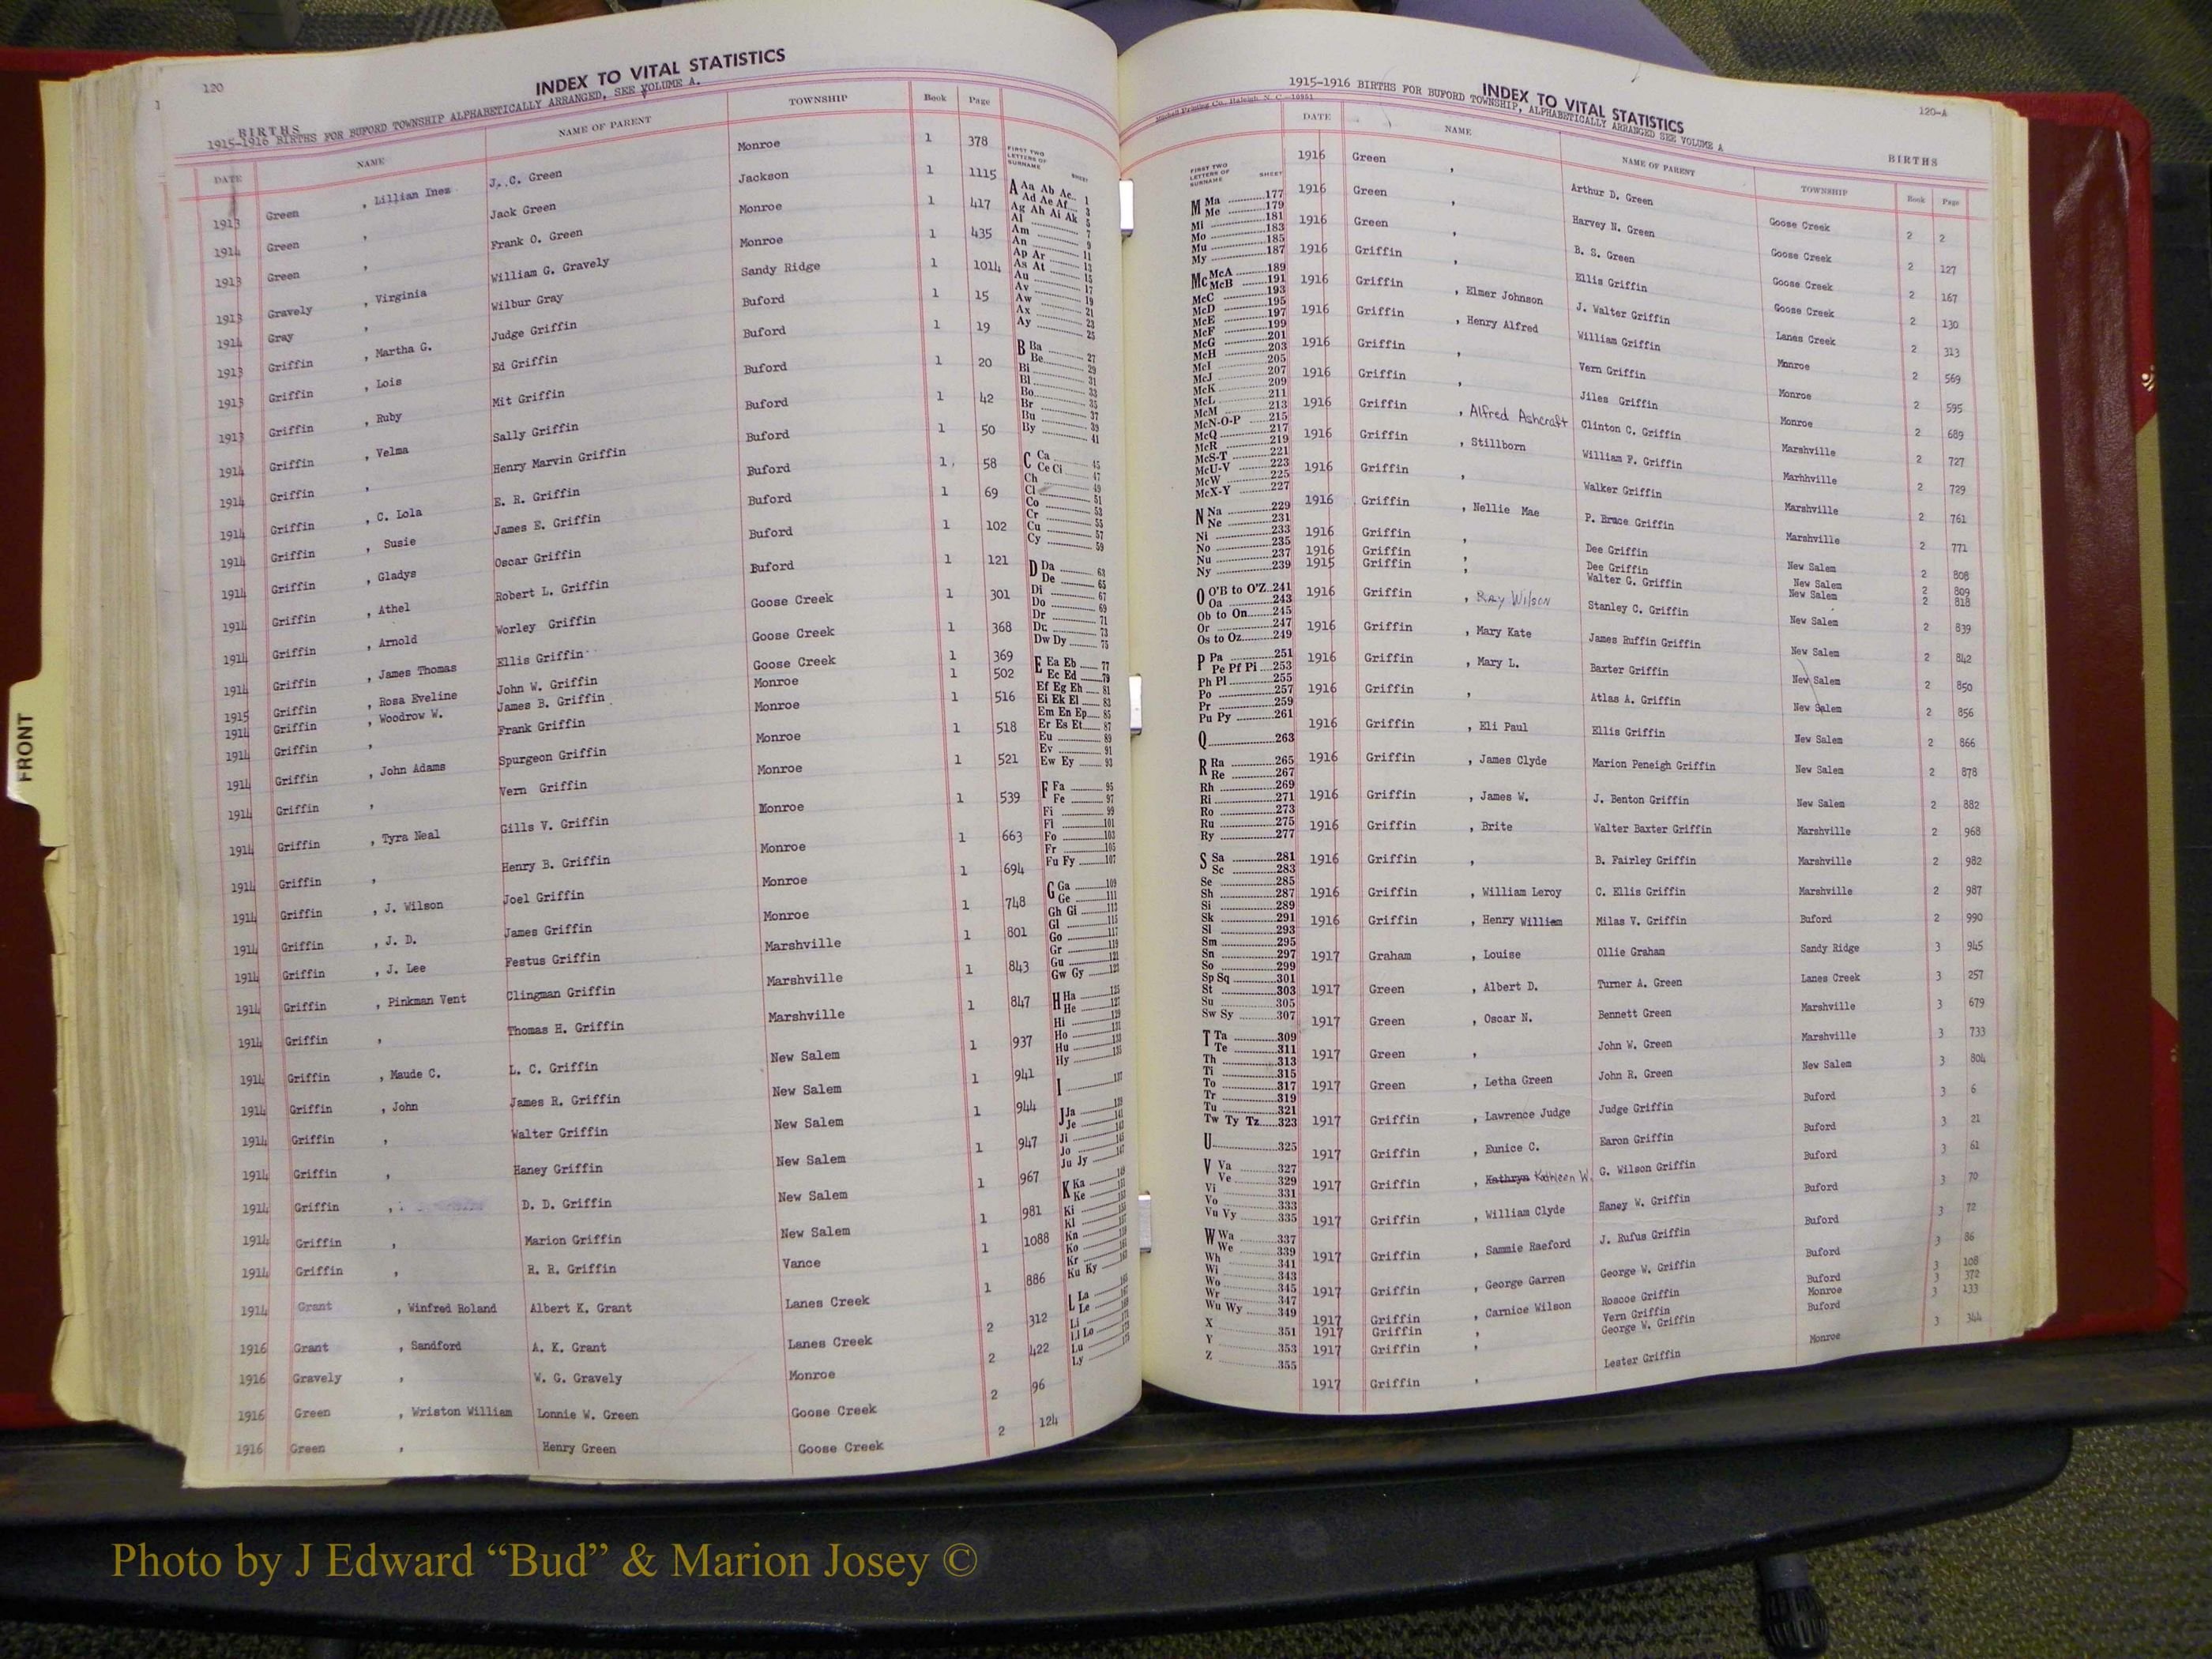 120
INDEX TO VITAL STATISTICS
BIRTHS
1915-1916 BIRTHS FOR BUFORD TOWNSHIP ALPHABETICALLY ARRANGED, SEE VOLUME A.
DATE NAME NAME OF PARENT TOWNSHIP Book Page
1913 Green , Lillian Inez J. C. Green Monroe 1 378
1914 Green , Jack Green Jackson 1 1115
1913 Green , Frank O. Green Monroe 1 417
1913 Gravely , Virginia William G. Gravely Monroe 1 435
1914 Gray , Wilbur Gray Sandy Ridge 1 1014
1913 Griffin , Martha G. Judge Griffin Buford 1 15
1913 Griffin , Lois Ed Griffin Buford 1 19
1913 Griffin , Ruby Mit Griffin Buford 1 20
1914 Griffin , Velma Sally Griffin Buford 1 42
1914 Griffin , Henry Marvin Griffin Buford 1 50
1914 Griffin , C. Lola E. R. Griffin Buford 1 58
1914 Griffin , Susie James E. Griffin Buford 1 69
1914 Griffin , Gladys Oscar Griffin Buford 1 102
1914 Griffin , Athel Robert L. Griffin Buford 1 121
1914 Griffin , Arnold Worley Griffin Goose Creek 1 301
1914 Griffin , James Thomas Ellis Griffin Goose Creek 1 368
1915 Griffin , Rosa Eveline John W. Griffin Goose Creek 1 369
1914 Griffin , Woodrow W. James B. Griffin Monroe 1 502
1914 Griffin , Frank Griffin Monroe 1 516
1914 Griffin , John Adams Spurgeon Griffin Monroe 1 518
1914 Griffin , Vern Griffin Monroe 1 521
1914 Griffin , Tyra Neal Gills V. Griffin Monroe 1 539
1914 Griffin , Henry B. Griffin Monroe 1 663
1914 Griffin , J. Wilson Joel Griffin Monroe 1 694
1914 Griffin , J. D. James Griffin Monroe 1 748
1914 Griffin , J. Lee Festus Griffin Marshville 1 801
1914 Griffin , Pinkman Vent Clingman Griffin Marshville 1 843
1914 Griffin , Thomas H. Griffin Marshville 1 847
1914 Griffin , Maude C. L. C. Griffin New Salem 1 937
1914 Griffin , John James R. Griffin New Salem 1 941
1914 Griffin , Walter Griffin New Salem 1 944
1914 Griffin , Haney Griffin New Salem 1 947
1914 Griffin , D. D. Griffin New Salem 1 967
1914 Griffin , Marion Griffin New Salem 1 981
1914 Griffin , R. R. Griffin Vance 1 1088
1914 Grant , Winfred Roland Albert K. Grant Lanes Creek 1 886
1916 Grant , Sandford A. K. Grant Lanes Creek 2 312
1916 Gravely , W. G. Gravely Monroe 2 422
1916 Green , Wriston William Lonnie W. Green Goose Creek 2 96
1916 Green , Henry Green Goose Creek 2 124
FIRST TWO LETTERS OF SURNAME SHEET
A Aa Ab Ac 1
Ad Ae Af 3
Ag Ah Ai Ak 5
Al 7
Am 9
An 11
Ap Ar 13
As At 15
Au 17
Av 19
Aw 21
Ax 23
Ay 25
B Ba 27
Be 29
Bi 31
Bl 33
Bo 35
Br 37
Bu 39
By 41
C Ca 45
Ce Ci 47
Ch 49
Cl 51
Co 53
Cr 55
Cu 57
Cy 59
D Da 63
De 65
Di 67
Do 69
Dr 71
Du 73
Dw Dy 75
E Ea Eb 77
Ec Ed 79
Ef Eg Eh 81
Ei Ek El 83
Em En Ep 85
Er Es Et 87
Eu 89
Ev 91
Ew Ey 93
F Fa 95
Fe 97
Fi 99
Fl 101
Fo 103
Fr 105
Fu Fy 107
G Ga 109
Ge 111
Gh Gi 113
Gl 115
Go 117
Gr 119
Gu 121
Gw Gy 123
H Ha 125
He 127
Hi 129
Ho 131
Hu 133
Hy 135
I 137
J Ja 139
Je 141
Ji 143
Jo 145
Ju Jy 147
K Ka 149
Ke 151
Ki 153
Kl 155
Kn
Ko
Kr
Ku Ky
L La
Le
Li
Ll Lo
Lu
Ly
120-A
INDEX TO VITAL STATISTICS
1915-1916 BIRTHS FOR BUFORD TOWNSHIP, ALPHABETICALLY ARRANGED SEE VOLUME A
BIRTHS
Mitchell Printing Co., Raleigh, N. C.—10951
FIRST TWO LETTERS OF SURNAME SHEET
M Ma 177
Me 179
Mi 181
Mo 183
Mu 185
My 187
Mc McA 189
McB 191
McC 193
McD 195
McE 197
McF 199
McG 201
McH 203
McI 205
McJ 207
McK 209
McL 211
McM 213
McN-O-P 215
McQ 217
McR 219
McS-T 221
McU-V 223
McW 225
McX-Y 227
N Na 229
Ne 231
Ni 233
No 235
Nu 237
Ny 239
O O'B to O'Z 241
Oa 243
Ob to On 245
Or 247
Os to Oz 249
P Pa 251
Pe Pf Pi 253
Ph Pl 255
Po 257
Pr 259
Pu Py 261
Q 263
R Ra 265
Re 267
Rh 269
Ri 271
Ro 273
Ru 275
Ry 277
S Sa 281
Sc 283
Se 285
Sh 287
Si 289
Sk 291
Sl 293
Sm 295
Sn 297
So 299
Sp Sq 301
St 303
Su 305
Sw Sy 307
T Ta 309
Te 311
Th 313
Ti 315
To 317
Tr 319
Tu 321
Tw Ty Tz 323
U 325
V Va 327
Ve 329
Vi 331
Vo 333
Vu Vy 335
W Wa 337
We 339
Wh 341
Wi 343
Wo 345
Wr 347
Wu Wy 349
X 351
Y 353
Z 355
DATE NAME NAME OF PARENT TOWNSHIP Book Page
1916 Green , Arthur D. Green Goose Creek 2 2
1916 Green , Harvey N. Green Goose Creek 2 127
1916 Green , B. S. Green Goose Creek 2 167
1916 Griffin , Ellis Griffin Goose Creek 2 130
1916 Griffin , Elmer Johnson J. Walter Griffin Lanes Creek 2 313
1916 Griffin , Henry Alfred William Griffin Monroe 2 569
1916 Griffin , Vern Griffin Monroe 2 595
1916 Griffin , Jiles Griffin Monroe 2 689
1916 Griffin , Alfred Ashcraft Clinton C. Griffin Marshville 2 727
1916 Griffin , Stillborn William F. Griffin Marhhville 2 729
1916 Griffin , Walker Griffin Marshville 2 761
1916 Griffin , Nellie Mae P. Bruce Griffin Marshville 2 771
1916 Griffin , Dee Griffin New Salem 2 808
1916 Griffin , Dee Griffin New Salem 2 809
1915 Griffin , Walter G. Griffin New Salem 2 818
1916 Griffin , Ray Wilson Stanley C. Griffin New Salem 2 839
1916 Griffin , Mary Kate James Ruffin Griffin New Salem 2 842
1916 Griffin , Mary L. Baxter Griffin New Salem 2 850
1916 Griffin , Atlas A. Griffin New Salem 2 856
1916 Griffin , Eli Paul Ellis Griffin New Salem 2 866
1916 Griffin , James Clyde Marion Peneigh Griffin New Salem 2 878
1916 Griffin , James W. J. Benton Griffin New Salem 2 882
1916 Griffin , Brite Walter Baxter Griffin Marshville 2 968
1916 Griffin , B. Fairley Griffin Marshville 2 982
1916 Griffin , William Leroy C. Ellis Griffin Marshville 2 987
1916 Griffin , Henry William Milas V. Griffin Buford 2 990
1917 Graham , Louise Ollie Graham Sandy Ridge 3 945
1917 Green , Albert D. Turner A. Green Lanes Creek 3 257
1917 Green , Oscar N. Bennett Green Marshville 3 679
1917 Green , John W. Green Marshville 3 733
1917 Green , Letha Green John R. Green New Salem 3 804
1917 Griffin , Lawrence Judge Judge Griffin Buford 3 6
1917 Griffin , Eunice C. Earon Griffin Buford 3 21
1917 Griffin , Kathryn Kathleen W. G. Wilson Griffin Buford 3 61
1917 Griffin , William Clyde Haney W. Griffin Buford 3 70
1917 Griffin , Sammie Raeford J. Rufus Griffin Buford 3 72
1917 Griffin , George Garren George W. Griffin Buford 3 86
1917 Griffin , Carnice Wilson Roscoe Griffin Buford 3 108
1917 Griffin , Vern Griffin Monroe 3 372
1917 Griffin , George W. Griffin Buford 3 133
1917 Griffin , Lester Griffin Monroe 3 344
FRONT
Photo by J Edward “Bud” & Marion Josey ©